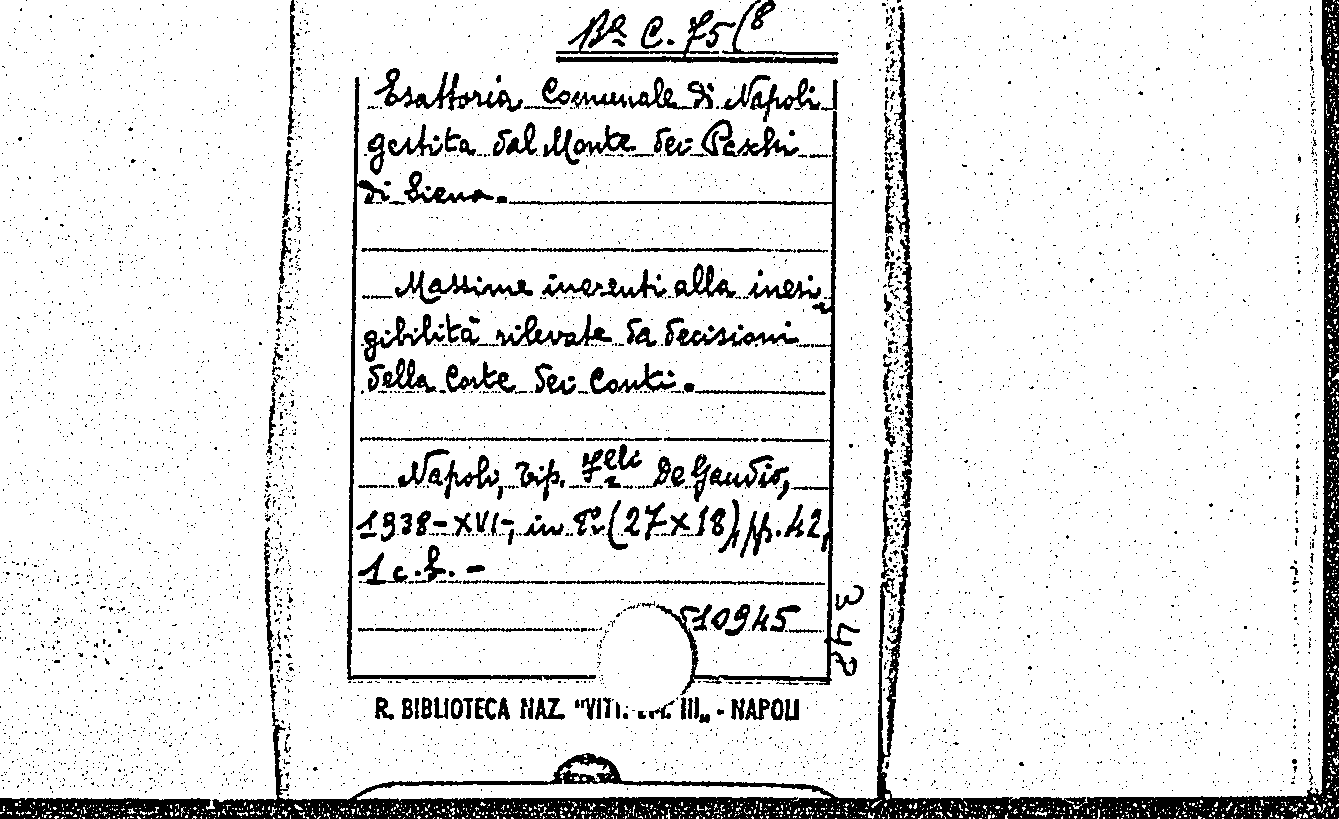 Bª C. 75 (8
Esattoria Comunale di Napoli
gestita dal Monte dei Paschi
di Siena.
Massime inerenti alla inesi-
gibilità rilevate da decisioni
della Corte dei Conti.
Napoli, tip. F.lli De Gaudio,
1938-XVI-, in 8º (27×18), pp. 42,
1 c.b. -
510945
342
R. BIBLIOTECA NAZ. "VITT. EM. III„ - NAPOLI